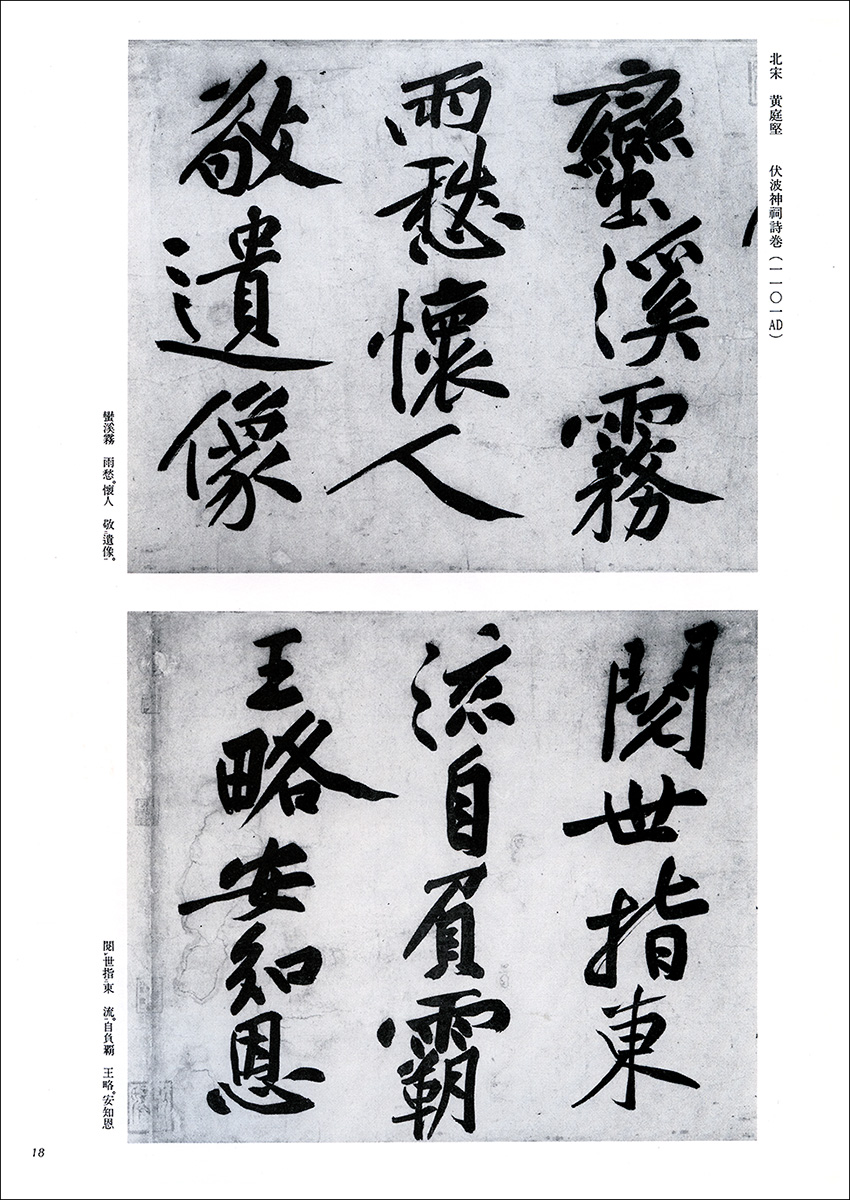 北宋　黃庭堅　伏波神祠詩卷（一一〇一AD）
蠻溪霧
雨愁懷人
敬遺像
蠻溪霧　雨愁。懷人　敬遺像。
閱世指東
流自負霸
王略安知恩
閱世指東　流。自負霸　王略。安知恩
18